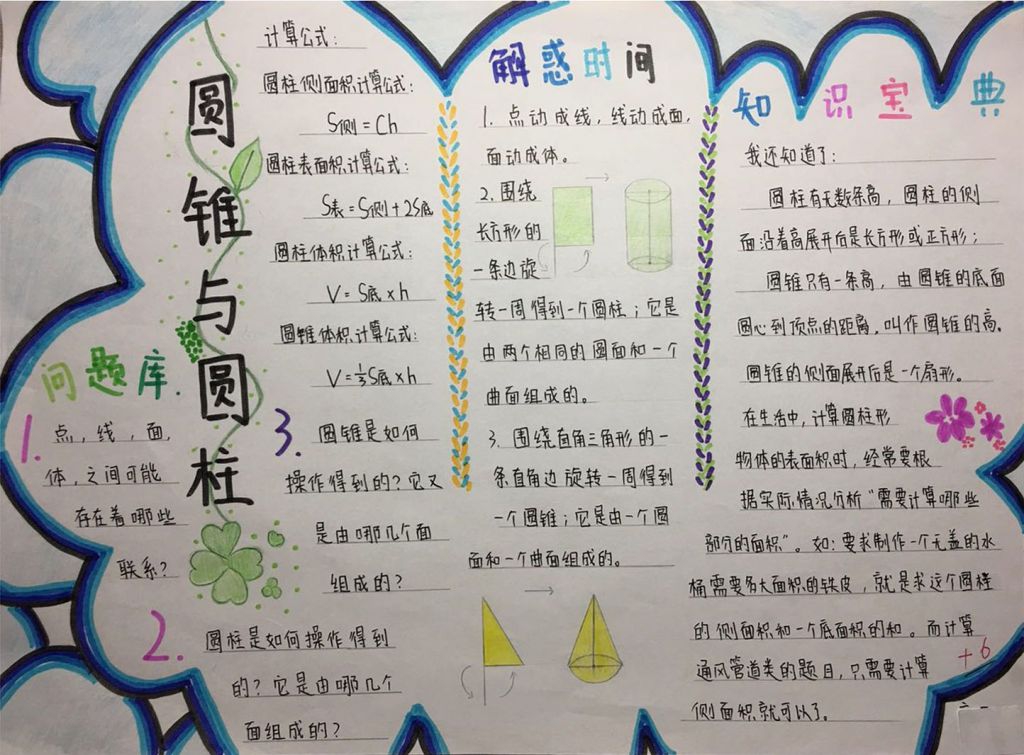 圆锥与圆柱
计算公式：
圆柱侧面积计算公式：
S侧=Ch
圆柱表面积计算公式：
S表=S侧+2S底
圆柱体积计算公式：
V=S底×h
圆锥体积计算公式：
V=⅓S底×h
问题库.
1.
点，线，面，
体，之间可能
存在着哪些
联系？
2.
圆柱是如何操作得到
的？它是由哪几个
面组成的？
3.
圆锥是如何
操作得到的？它又
是由哪几个面
组成的？
解惑时间
1. 点动成线，线动成面，
面动成体。
2. 围绕
长方形的
一条边旋
转一周得到一个圆柱；它是
由两个相同的圆面和一个
曲面组成的。
3. 围绕直角三角形的一
条直角边旋转一周得到
一个圆锥；它是由一个圆
面和一个曲面组成的。
知识宝典
我还知道了：
圆柱有无数条高，圆柱的侧
面沿着高展开后是长方形或正方形；
圆锥只有一条高，由圆锥的底面
圆心到顶点的距离，叫作圆锥的高。
圆锥的侧面展开后是一个扇形。
在生活中，计算圆柱形
物体的表面积时，经常要根
据实际情况分析“需要计算哪些
部分的面积”。如：要求制作一个无盖的水
桶需要多大面积的铁皮，就是求这个圆柱
的侧面积和一个底面积的和。而计算
通风管道类的题目，只需要计算
侧面积就可以了。
+6